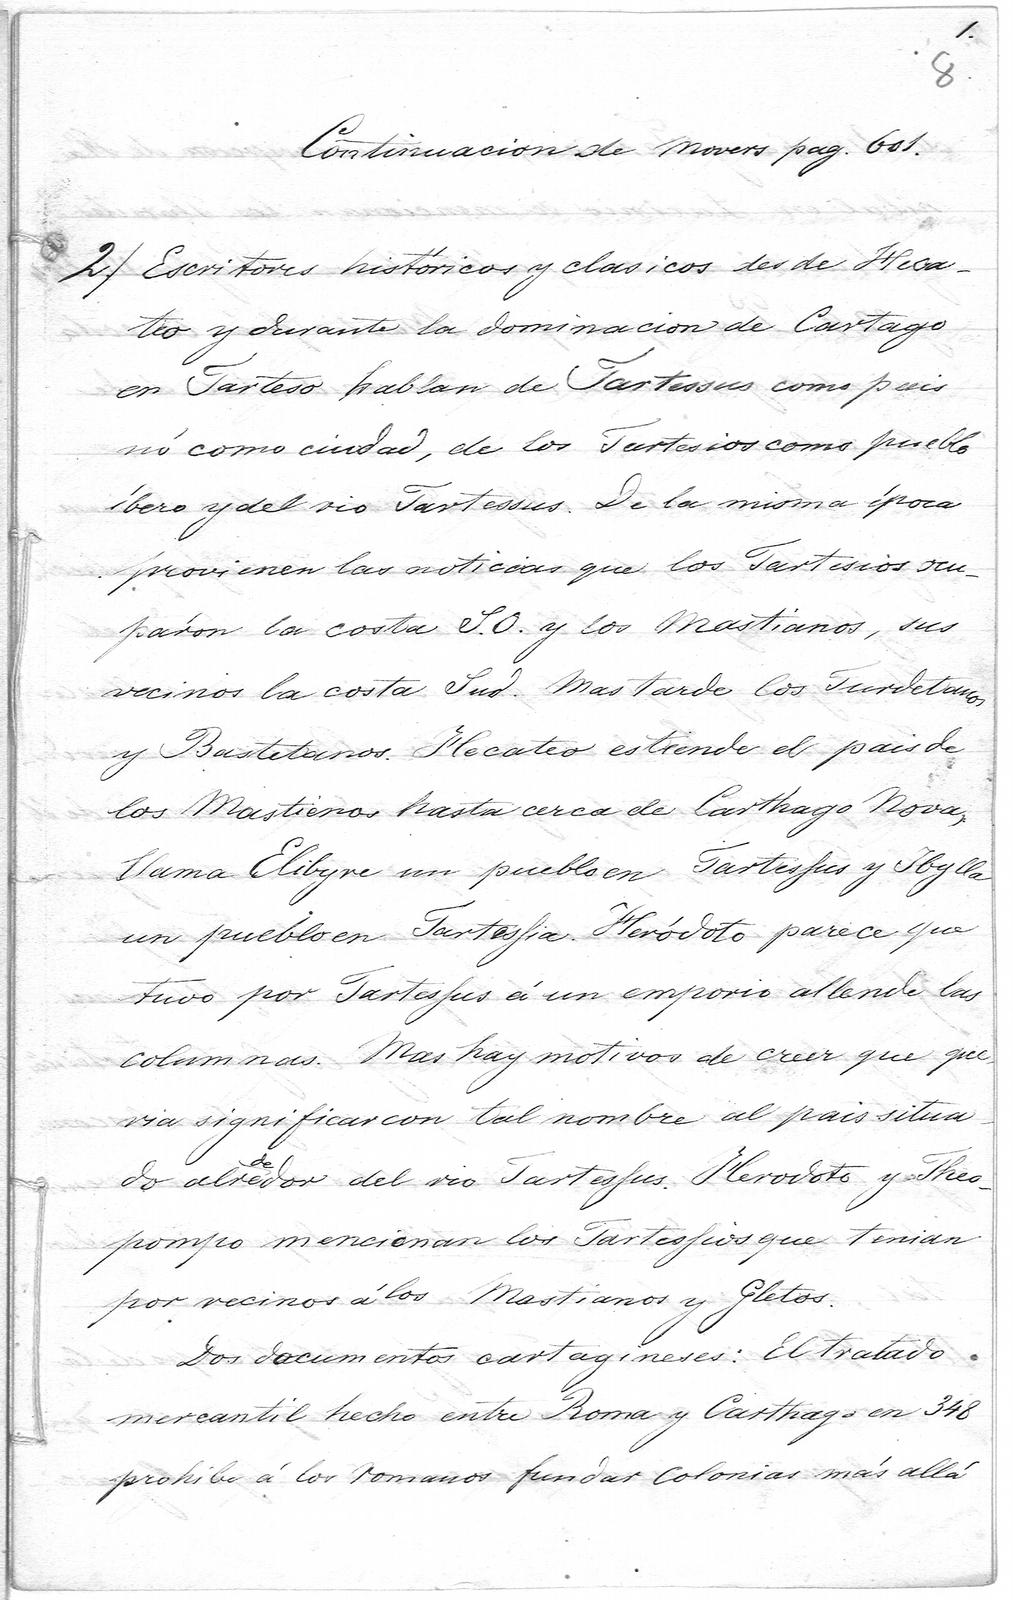 1.
8.
Continuacion de Movers pag. 601.
2/ Escritores históricos y clasicos desde Heca-
teo y durante la dominacion de Cartago
en Tarteso hablan de Tartessus como pais
nó como ciudad, de los Tartesios como pueblo
íbero y del rio Tartessus. De la misma época
provienen las noticias que los Tartesios ocu-
páron la costa S.O. y los Mastianos, sus
vecinos la costa Sud. Mas tarde los Turdetanos
y Bastetanos. Hecateo estiende el pais de
los Mastienos hasta cerca de Carthago Nova,
llama Elibyre un pueblo en Tartessus y Ibylla
un pueblo en Tartessia. Heródoto parece que
tuvo por Tartessus á un emporio allende las
columnas. Mas hay motivos de creer que que
ria significar con tal nombre al pais situa
do alrededor del rio Tartessus. Herodoto y Theo-
pompo mencionan los Tartessios que tenian
por vecinos á los Mastianos y Gletos.
Dos documentos cartagineses: El tratado
mercantil hecho entre Roma y Carthago en 348
prohibe á los romanos fundar colonias más allá